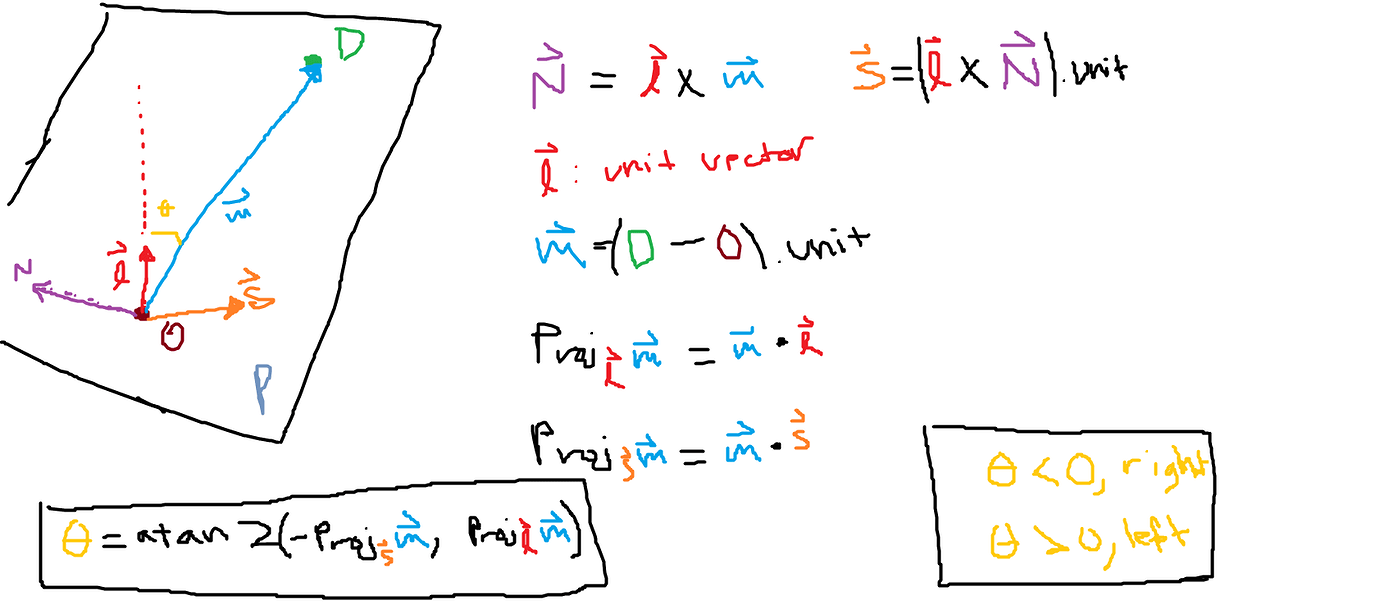 D
θ
m⃗
l⃗
N
s⃗
O
P
N⃗ = l⃗ × m⃗
s⃗ = (l⃗ × N⃗).unit
l⃗ : unit vector
m⃗ = (D − O).unit
Proj_l⃗ m⃗ = m⃗ · l⃗
Proj_s⃗ m⃗ = m⃗ · s⃗
θ = atan2(-Proj_s⃗ m⃗, Proj_l⃗ m⃗)
θ < 0, right
θ > 0, left